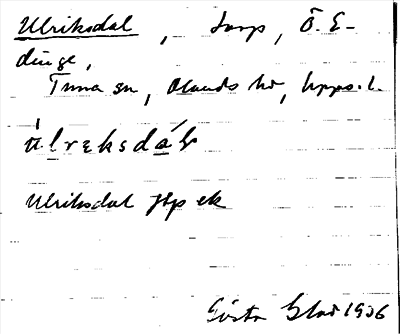 Ulriksdal, torp, Ö. E-
dinge,
Tuna sn, Olands hd, Upps. l.
ùlrɛksdáɫ
Ulriksdal Jbp ek
Gösta Blad 1936